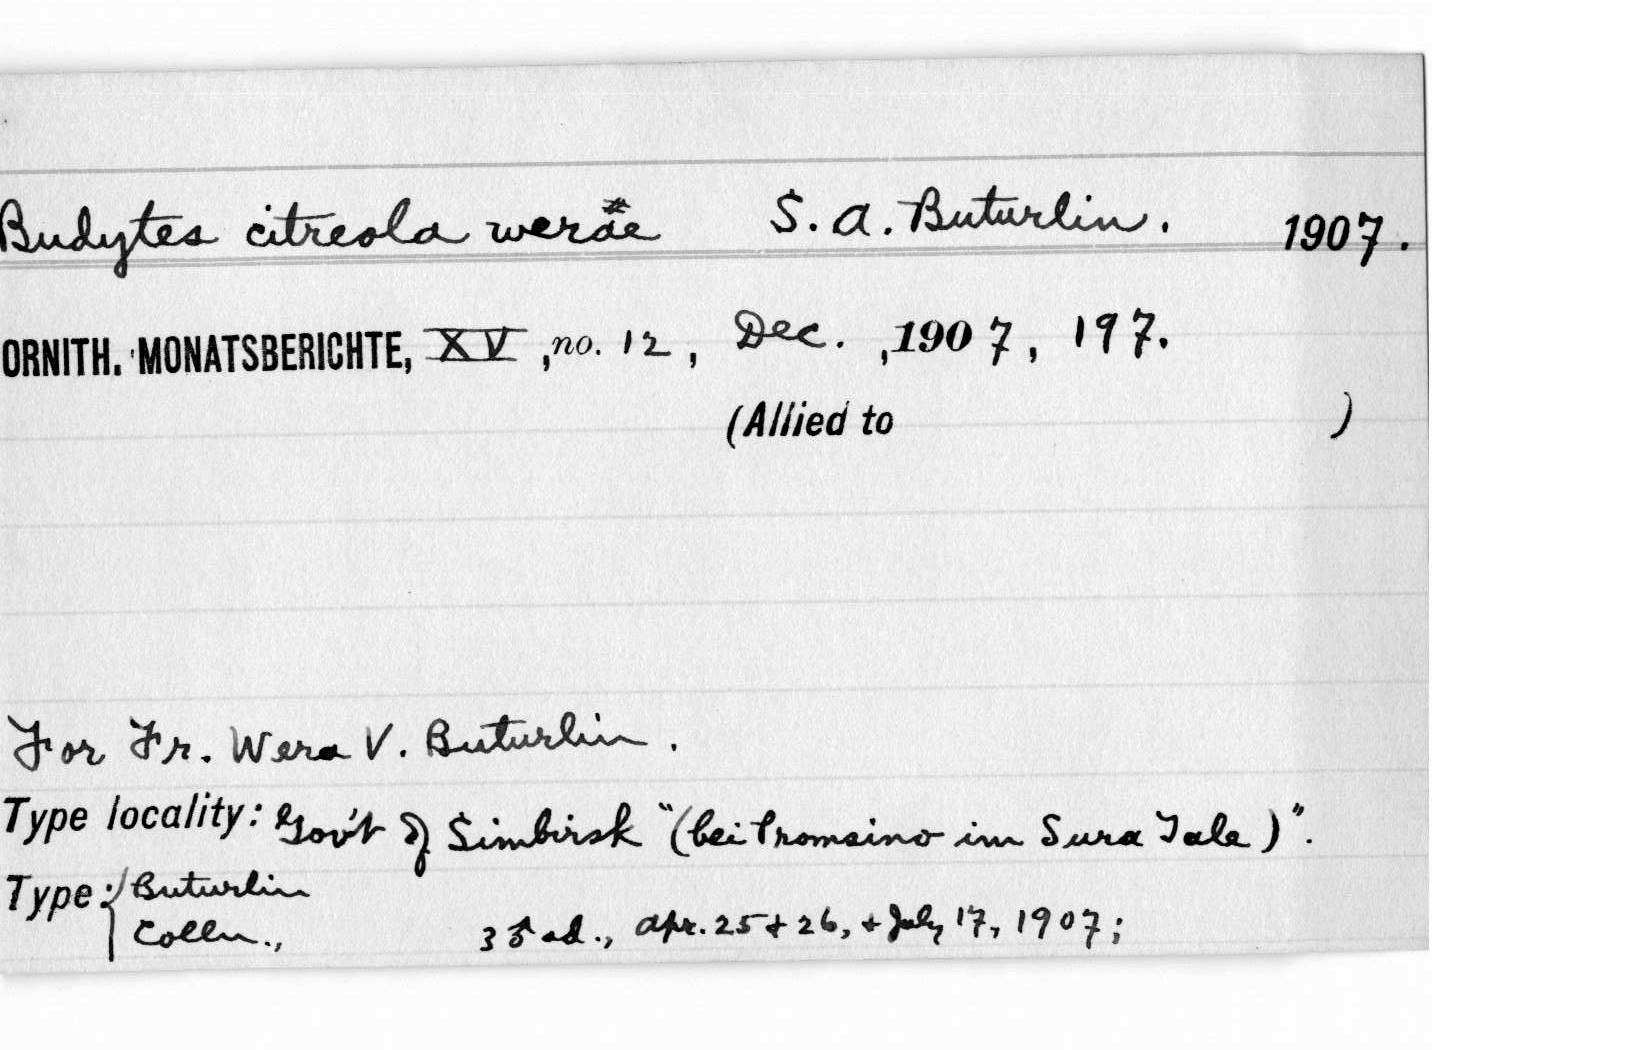 Budytes citreola weräe S. A. Buturlin. 1907.
ORNITH. MONATSBERICHTE, XV, no. 12, Dec., 1907, 197.
(Allied to )
For Fr. Wera V. Buturlin.
Type locality: Gov't of Simbirsk "(bei Promsino im Sura Tale)".
Type: Buturlin
Colln., 3 ♂ ad., Apr. 25 + 26, + July 17, 1907;